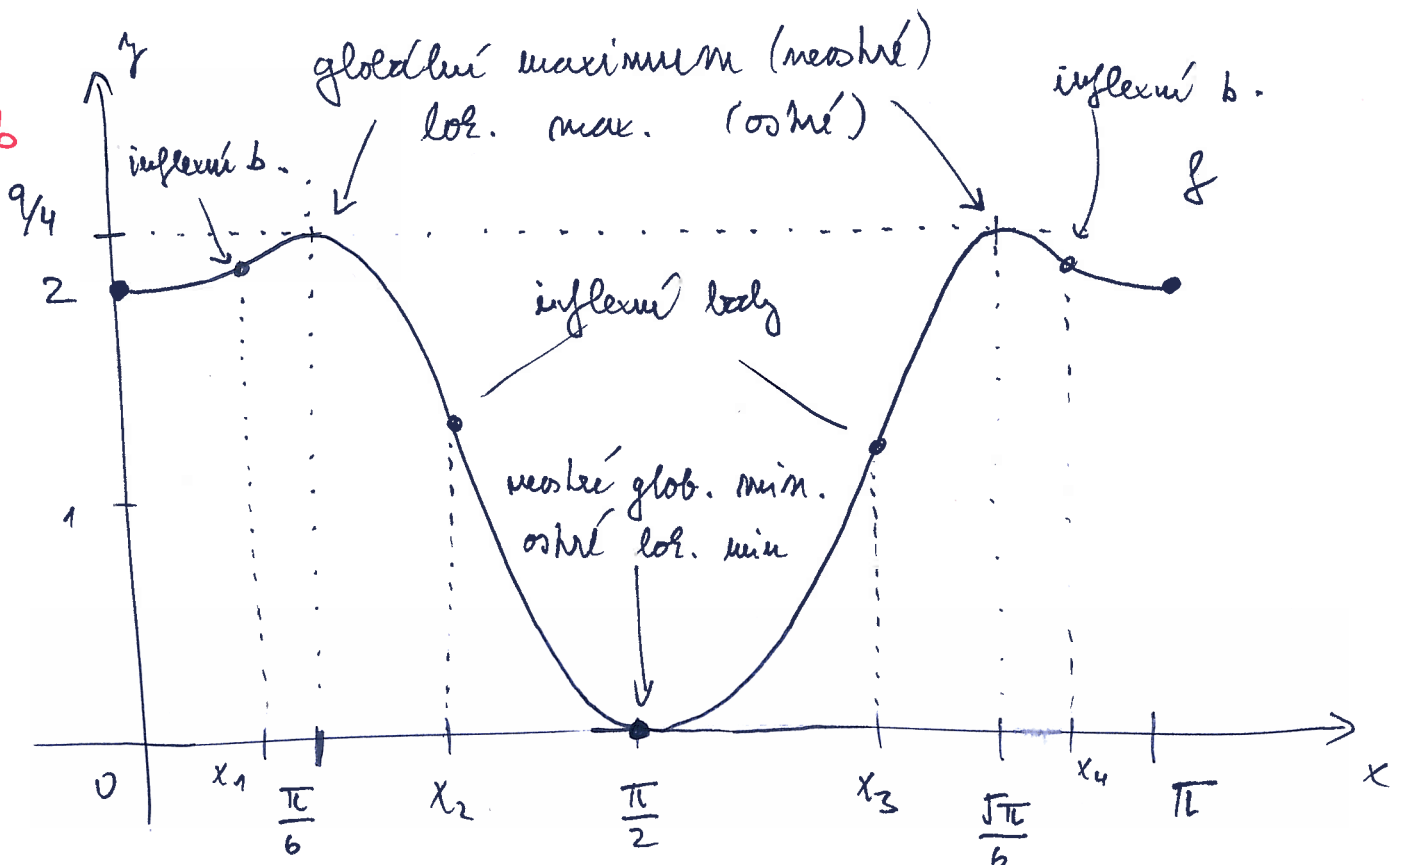 y
globální maximum (neostré)
lok. max. (ostré)
inflexní b.
inflexní b.
f
9/4
2
inflexní body
neostré glob. min.
ostré lok. min
1
0
x1
π/6
x2
π/2
x3
5π/6
x4
π
x